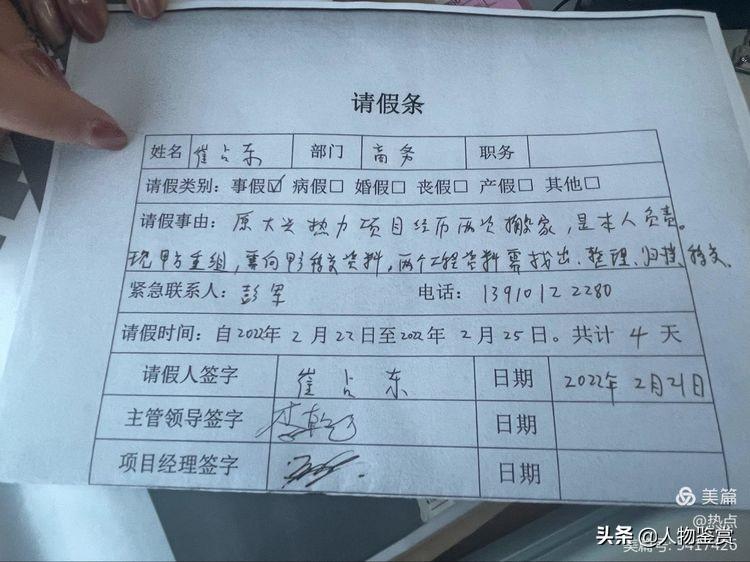 请假条
姓名 崔占东 部门 商务 职务
请假类别：事假☑ 病假□ 婚假□ 丧假□ 产假□ 其他□
请假事由：原大兴热力项目经历两次搬家，是本人负责。
现甲方重组，要向甲方移交资料，两个工程资料需找出、整理、归档、移交。
紧急联系人：彭军 电话：13910122280
请假时间：自2022年2月22日至2022年2月25日。共计4天
请假人签字 崔占东 日期 2022年2月21日
主管领导签字 日期
项目经理签字 日期
美篇
@热点
头条 @人物鉴赏
美篇号: 5417426